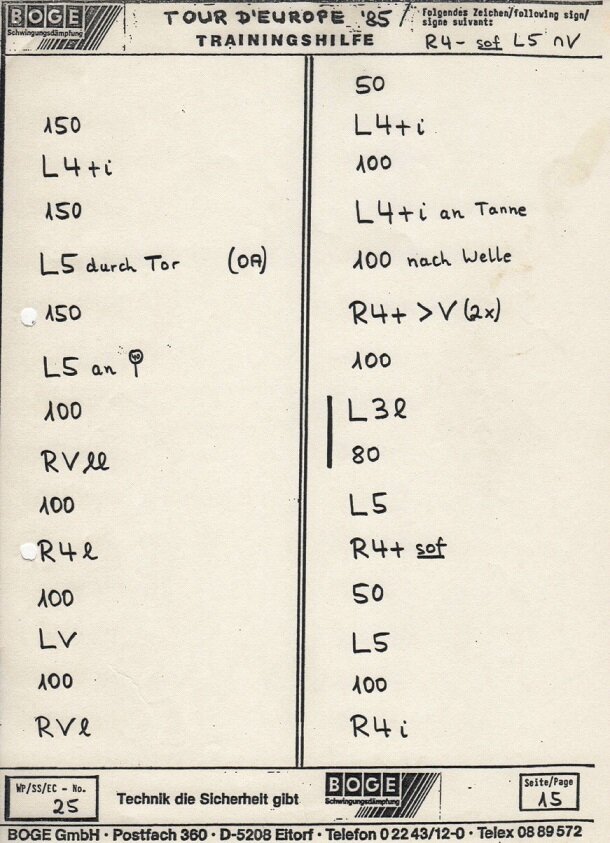 BOGE
Schwingungsdämpfung
TOUR D'EUROPE '85
TRAININGSHILFE
Folgendes Zeichen/following sign/
signe suivant:
R4- sof L5 ∩V
150
L4+i
150
L5 durch Tor (OA)
150
L5 an
100
RVll
100
R4l
100
LV
100
RVl
50
L4+i
100
L4+i an Tanne
100 nach Welle
R4+ >V (2x)
100
L3l
80
L5
R4+ sof
50
L5
100
R4i
WP/SS/EC - No.
25
Technik die Sicherheit gibt
BOGE
Schwingungsdämpfung
Seite/Page
15
BOGE GmbH · Postfach 360 · D-5208 Eitorf · Telefon 0 22 43/12-0 · Telex 08 89 572